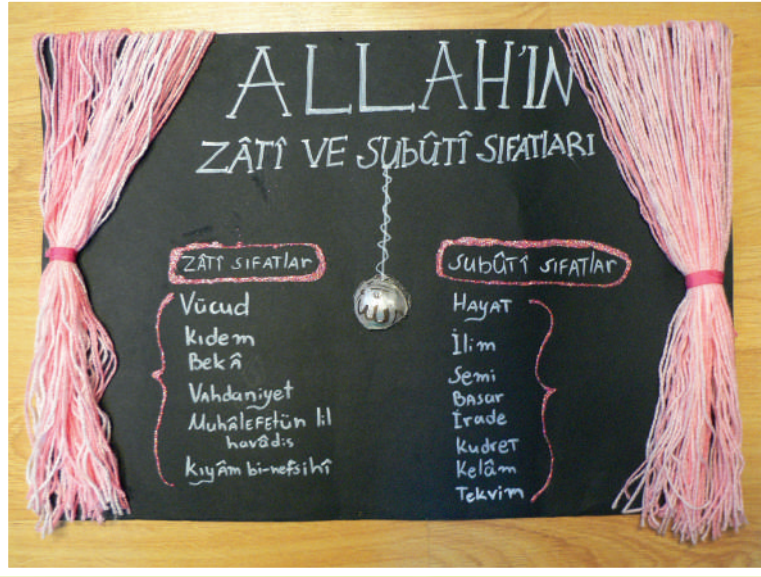 ALLAH'IN
ZÂTÎ VE SUbÛTÎ SIFATlARI
ZÂTÎ SIFATlAR
Vücud
Kıdem
Bekâ
Vahdaniyet
Muhâlefetün lil
havâdis
Kıyâm bi-nefsihî
SUbÛTÎ SIFATlAR
HAYAT
İlim
Semi
BAsar
İrade
Kudret
Kelâm
Tekvim
الله